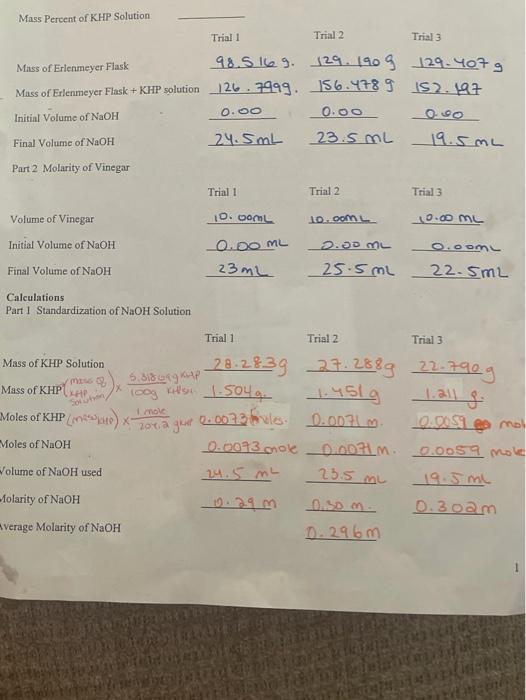 Mass Percent of KHP Solution
Trial 1 Trial 2 Trial 3
Mass of Erlenmeyer Flask 98.516 g. 129.190 g 129.407 g
Mass of Erlenmeyer Flask + KHP solution 126.799g. 156.478 g 152.197
Initial Volume of NaOH 0.00 0.00 0.00
Final Volume of NaOH 24.5mL 23.5 mL 19.5 mL
Part 2 Molarity of Vinegar
Trial 1 Trial 2 Trial 3
Volume of Vinegar 10.00mL 10.00mL 10.00 mL
Initial Volume of NaOH 0.00 mL 0.00 mL 0.00mL
Final Volume of NaOH 23mL 25.5 mL 22.5mL
Calculations
Part 1 Standardization of NaOH Solution
Trial 1 Trial 2 Trial 3
Mass of KHP Solution 28.283g 27.288g 22.790 g
Mass of KHP (mass of KHP solution) × g KHP / 100g KHP 1.504 g. 1.451g 1.211 g.
Moles of KHP (mass KHP) × 1 mole / 204.2 g KHP 0.0073 moles. 0.0071 m. 0.0059 mol
Moles of NaOH 0.0073 mole 0.0071 m. 0.0059 mole
Volume of NaOH used 24.5 mL 23.5 mL 19.5 mL
Molarity of NaOH 0.29 m 0.30 m. 0.302m
Average Molarity of NaOH 0.296m
1